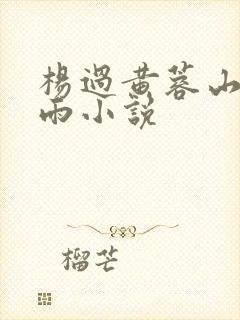 楊過黃蓉山
雨小說
榴芒